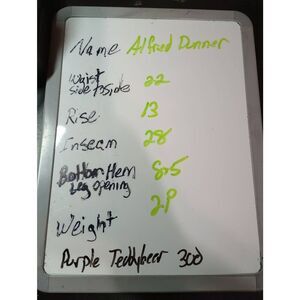 Name Alfred Dunner
Waist 22
side to side
Rise 13
Inseam 28
Bottom Hem 8.5
Leg Opening
29
Weight
Purple Teddybear 300